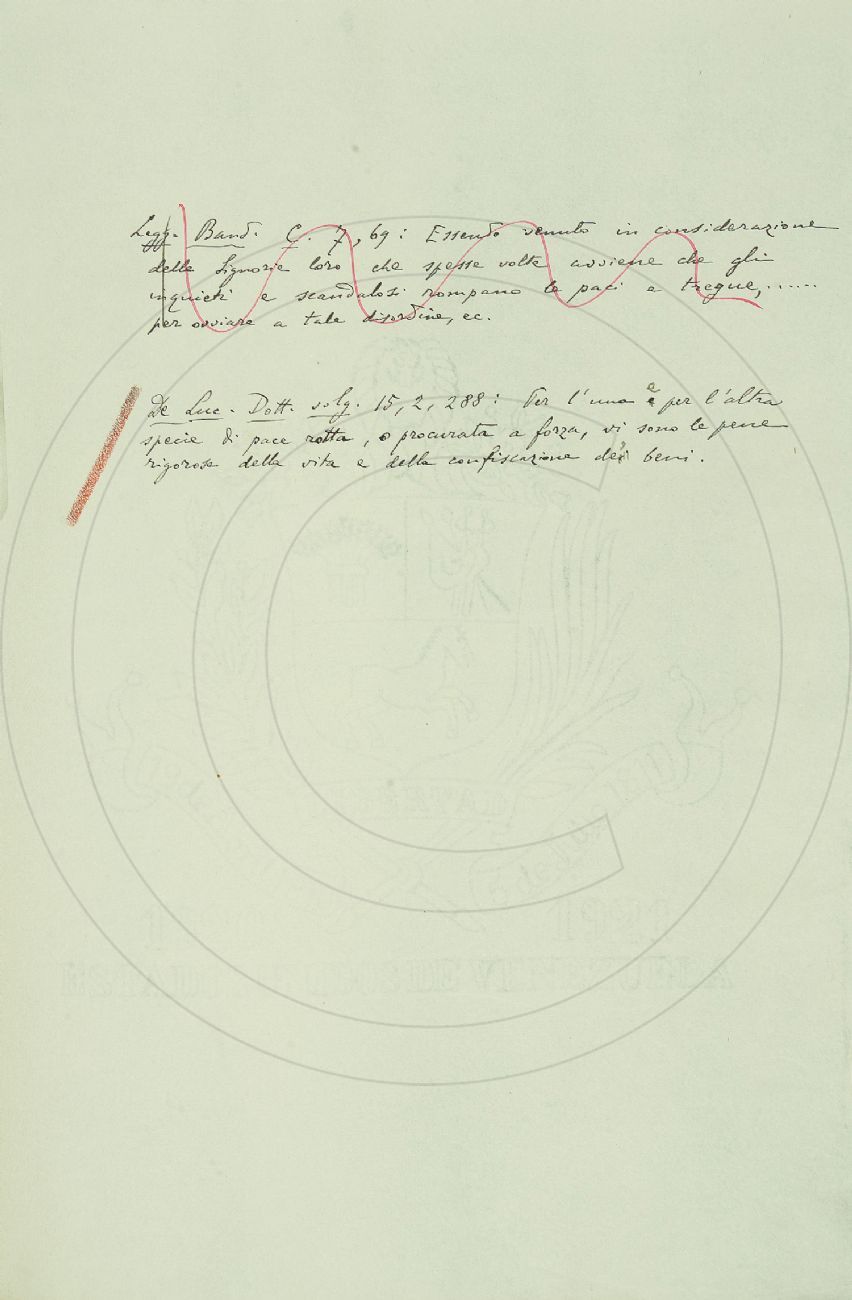 Legg. Band. C. 7, 69: Essendo venuto in considerazione
delle Signorie loro che spesse volte avviene che gli
inquieti e scandalosi rompano le paci e tregue, ......
per ovviare a tale disordine, ec.
De Luc. Dott. volg. 15, 2, 288: Per l'una e per l'altra
specie di pace rotta, o procurata a forza, vi sono le pene
rigorose della vita e della confiscazione de' beni.